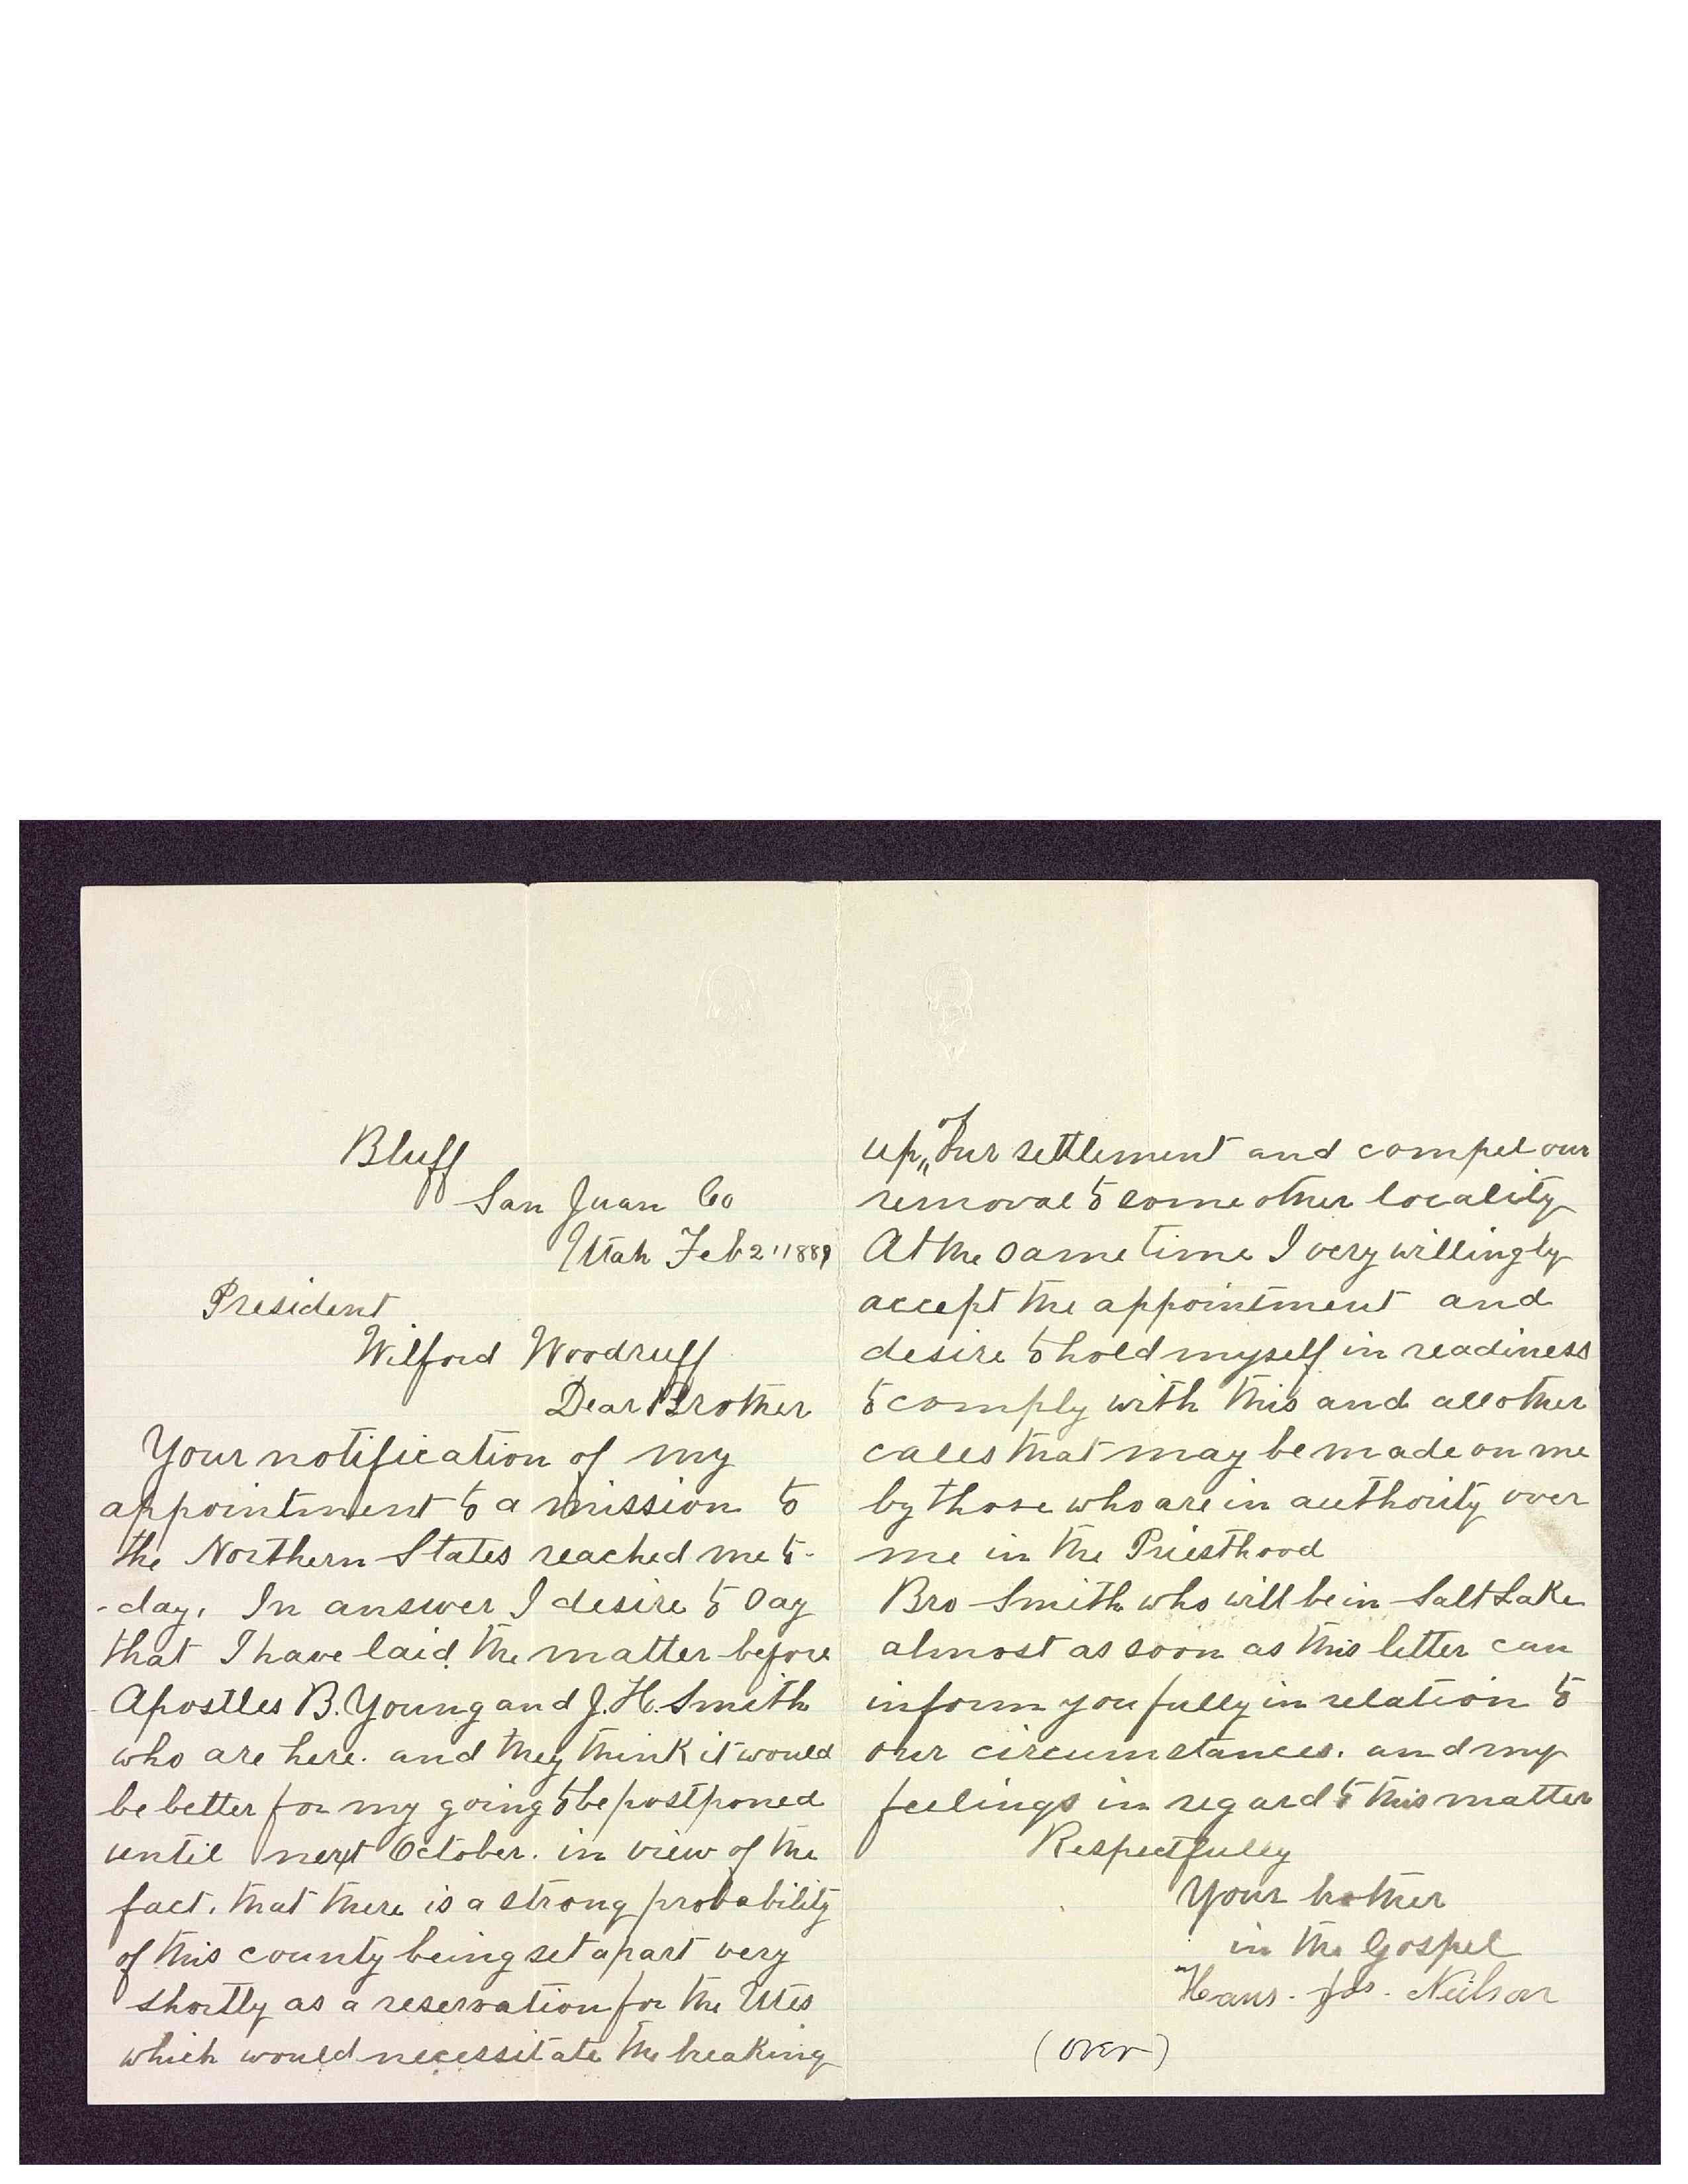 Bluff
San Juan Co
Utah Feb 2" 1889
President
Wilford Woodruff
Dear Brother
Your notification of my
appointment to a mission to
the Northern States reached me to-
-day. In answer I desire to say
that I have laid the matter before
Apostles B. Young and J. H. Smith
who are here. and they think it would
be better for my going to be postponed
until next October. in view of the
fact. that there is a strong probability
of this county being set apart very
shortly as a reservation for the Utes
which would necessitate the breaking
of
up,, our settlement and compel our
removal to some other locality
At the same time I very willingly
accept the appointment and
desire to hold myself in readiness
to comply with this and all other
calls that may be made on me
by those who are in authority over
me in the Priesthood
Bro Smith who will be in Salt Lake
almost as soon as this letter can
inform you fully in relation to
our circumstances. and my
feelings in regard to this matter
Respectfully
Your brother
in the Gospel
Hans. Jos. Neilson
(over)